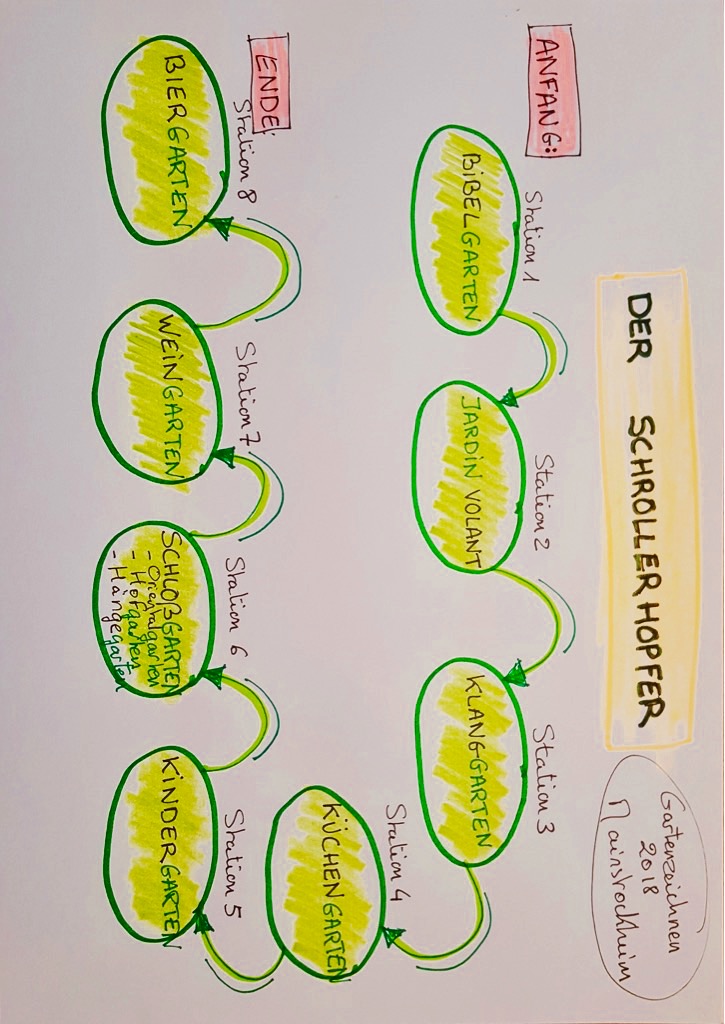 DER SCHROLLERHOPFER
Gartenzeichnen
2018
Mainstockheim
ANFANG:
Station 1
BIBELGARTEN
Station 2
JARDIN VOLANT
Station 3
KLANGGARTEN
Station 4
KÜCHENGARTEN
Station 5
KINDERGARTEN
Station 6
SCHLOßGARTEN
- Orientalgarten
- Hofgarten
- Hängegarten
Station 7
WEINGARTEN
ENDE:
Station 8
BIERGARTEN